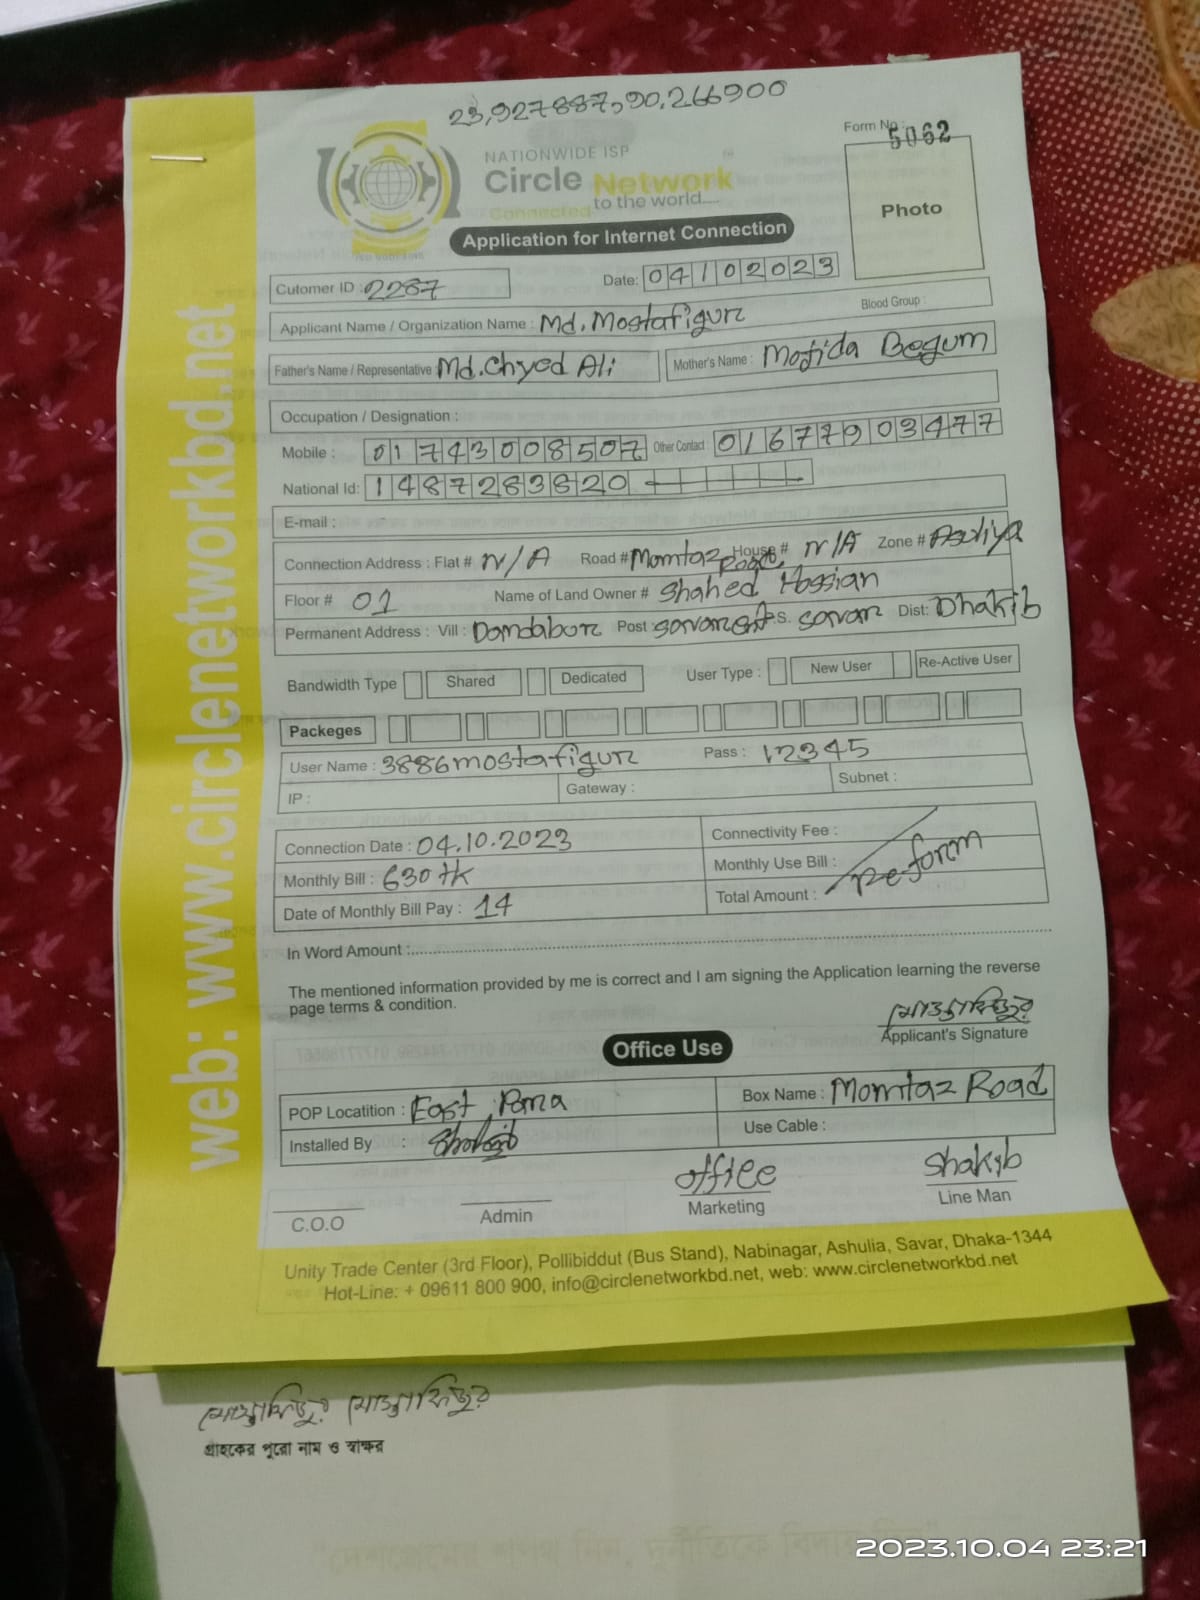 23,927887,90.266900
Form No: 5062
NATIONWIDE ISP
Circle Network
Connected to the world....
Photo
Application for Internet Connection
Cutomer ID : 2287 Date: 04102023
Applicant Name / Organization Name : Md. Mostafigur Blood Group :
Father's Name / Representative Md. Chyed Ali Mother's Name : Mojida Begum
Occupation / Designation :
Mobile : 01743008507 Other Contact : 01677903477
National Id: 1487283820
E-mail :
Connection Address : Flat # N/A Road # Momtaz Road, House # N/A Zone # Asuliya
Floor # 01 Name of Land Owner # Shahed Hossian
Permanent Address : Vill : Damdabur Post : P.S. Savar Dist: Dhaka
Bandwidth Type Shared Dedicated User Type : New User Re-Active User
Packeges
User Name : 3886mostafigur Pass : 12345
IP : Gateway : Subnet :
Connection Date : 04.10.2023 Connectivity Fee :
Monthly Bill : 630 tk Monthly Use Bill :
Date of Monthly Bill Pay : 14 Total Amount : Re-form
In Word Amount :
The mentioned information provided by me is correct and I am signing the Application learning the reverse
page terms & condition.
মোস্তাফিজুর
Applicant's Signature
Office Use
POP Locatition : East Box Name : Momtaz Road
Installed By : Shakib Use Cable :
office Shakib
C.O.O Admin Marketing Line Man
Unity Trade Center (3rd Floor), Pollibiddut (Bus Stand), Nabinagar, Ashulia, Savar, Dhaka-1344
Hot-Line: + 09611 800 900, info@circlenetworkbd.net, web: www.circlenetworkbd.net
web: www.circlenetworkbd.net
মোস্তাফিজুর মোস্তাফিজুর
গ্রাহকের পুরো নাম ও স্বাক্ষর
2023.10.04 23:21